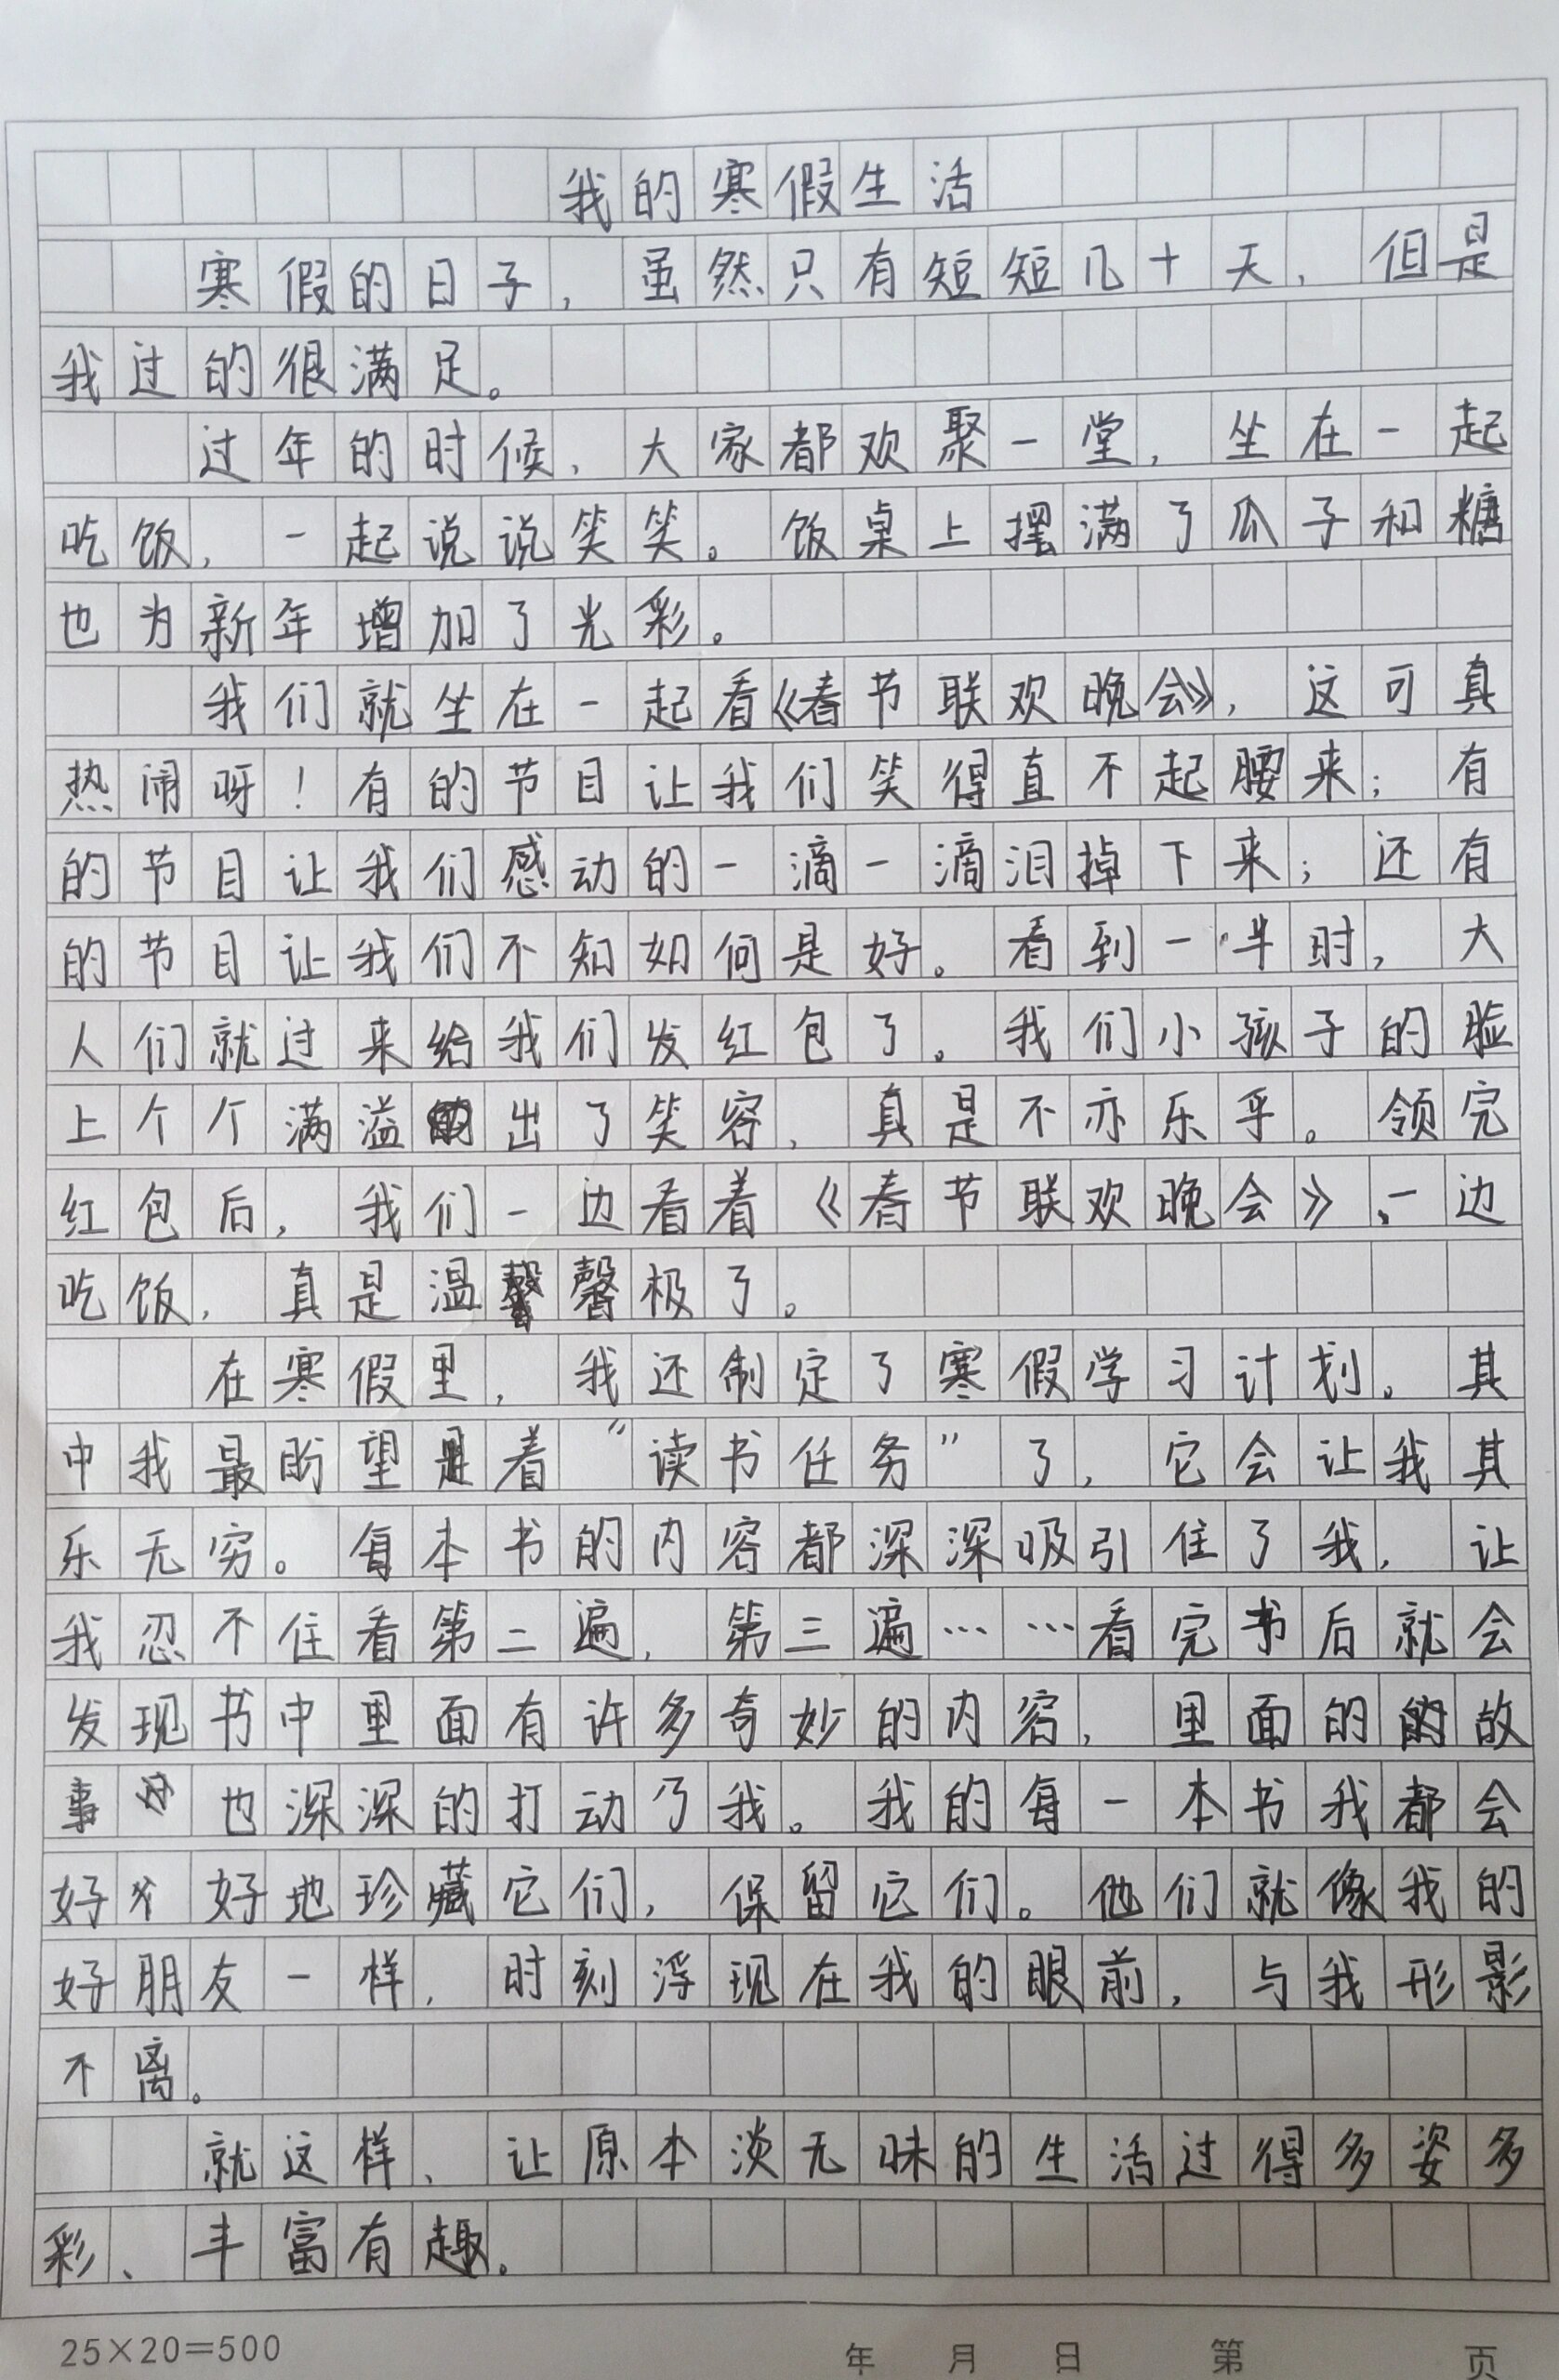 我的寒假生活
寒假的日子，虽然只有短短几十天，但是
我过的很满足。
过年的时候，大家都欢聚一堂，坐在一起
吃饭，一起说说笑笑。饭桌上摆满了瓜子和糖
也为新年增加了光彩。
我们就坐在一起看《春节联欢晚会》，这可真
热闹呀！有的节目让我们笑得直不起腰来；有
的节目让我们感动的一滴一滴泪掉下来；还有
的节目让我们不知如何是好。看到一半时，大
人们就过来给我们发红包了。我们小孩子的脸
上个个满溢出了笑容，真是不亦乐乎。领完
红包后，我们一边看着《春节联欢晚会》、一边
吃饭，真是温馨极了。
在寒假里，我还制定了寒假学习计划。其
中我最盼望着“读书任务”了，它会让我其
乐无穷。每本书的内容都深深吸引住了我，让
我忍不住看第二遍，第三遍……看完书后就会
发现书中里面有许多奇妙的内容，里面的故
事也深深的打动了我。我的每一本书我都会
好好地珍藏它们，保留它们。他们就像我的
好朋友一样，时刻浮现在我的眼前，与我形影
不离。
就这样、让原本淡无味的生活过得多姿多
彩、丰富有趣。
25×20=500 年 月 日 第 页